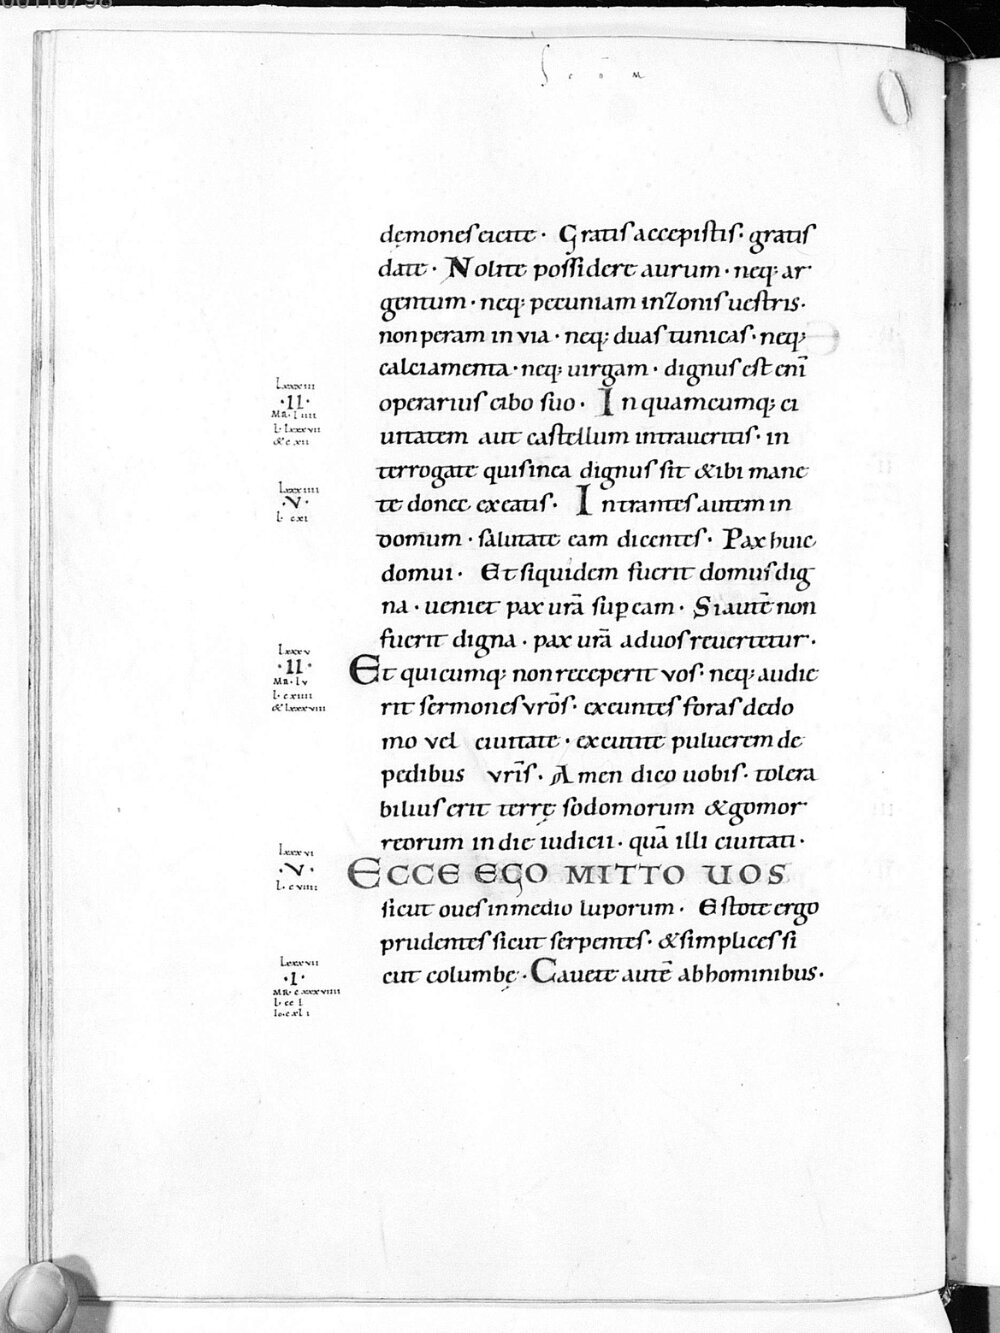 00110798
S c ō m
dęmones eicite · Gratis accepistis · gratis
date · Nolite possidere aurum · neq; ar
gentum · neq; pecuniam in zonis uestris ·
non peram in via · neq; duas tunicas · neq;
calciamenta · neq; uirgam · dignus est eni̅
operarius cibo suo · In quamcumq; ci
uitatem aut castellum intraueritis · in
terrogate quis in ea dignus sit & ibi mane
te donec exeatis · Intrantes autem in
domum · salutate eam dicentes · Pax huic
domui · Et siquidem fuerit domus dig
na · ueniet pax ura̅ sup eam · Si aute̅ non
fuerit digna · pax ura̅ ad uos reuertetur ·
Et quicumq; non receperit vos · neq; audie
rit sermones vro̅s · exeuntes foras de do
mo vel ciuitate · excutite puluerem de
pedibus vri̅s · Amen dico uobis · tolera
bilius erit terrę sodomorum & gomor
reorum in die iudicii · qua̅ illi ciuitati ·
ECCE EGO MITTO UOS
sicut oues in medio luporum · Estote ergo
prudentes sicut serpentes · & simplices si
cut columbę · Cauete aute̅ ab hominibus ·
Lxxxiii
·II·
MR · Liiii
L · Lxxxvii
& c xii
Lxxxiiii
·V·
L · cxi
Lxxxv
·II·
MR · Lv
L · cxiiii
& Lxxxviii
Lxxxvi
·V·
L · cviiii
Lxxxvii
·I·
MR · cxxxviiii
L · ccL
Io · cxLi